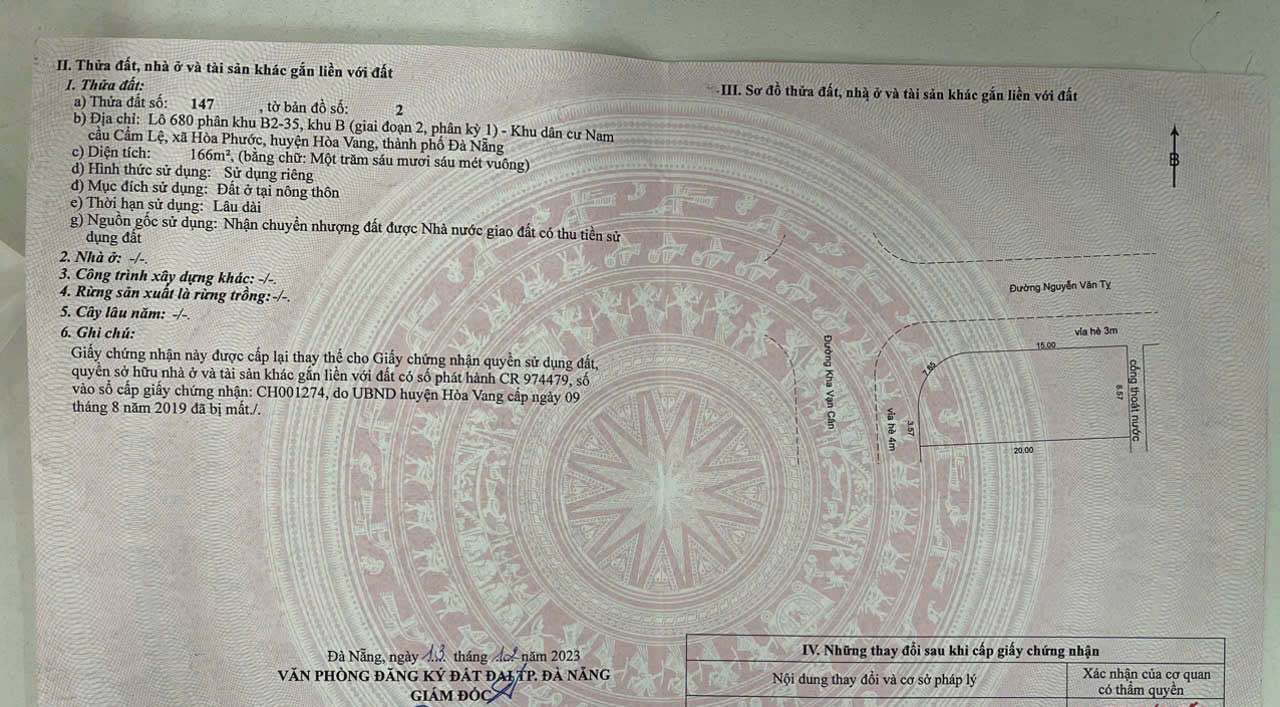 II. Thửa đất, nhà ở và tài sản khác gắn liền với đất
1. Thửa đất:
a) Thửa đất số: 147 , tờ bản đồ số: 2
b) Địa chỉ: Lô 680 phân khu B2-35, khu B (giai đoạn 2, phân kỳ 1) - Khu dân cư Nam
cầu Cẩm Lệ, xã Hòa Phước, huyện Hòa Vang, thành phố Đà Nẵng
c) Diện tích: 166m², (bằng chữ: Một trăm sáu mươi sáu mét vuông)
d) Hình thức sử dụng: Sử dụng riêng
đ) Mục đích sử dụng: Đất ở tại nông thôn
e) Thời hạn sử dụng: Lâu dài
g) Nguồn gốc sử dụng: Nhận chuyển nhượng đất được Nhà nước giao đất có thu tiền sử
dụng đất
2. Nhà ở: -/-.
3. Công trình xây dựng khác: -/-.
4. Rừng sản xuất là rừng trồng: -/-.
5. Cây lâu năm: -/-.
6. Ghi chú:
Giấy chứng nhận này được cấp lại thay thế cho Giấy chứng nhận quyền sử dụng đất,
quyền sở hữu nhà ở và tài sản khác gắn liền với đất có số phát hành CR 974479, số
vào sổ cấp giấy chứng nhận: CH001274, do UBND huyện Hòa Vang cấp ngày 09
tháng 8 năm 2019 đã bị mất./.
Đà Nẵng, ngày 13 tháng 12 năm 2023
VĂN PHÒNG ĐĂNG KÝ ĐẤT ĐAI TP. ĐÀ NẴNG
GIÁM ĐỐC
III. Sơ đồ thửa đất, nhà ở và tài sản khác gắn liền với đất
B
Đường Nguyễn Văn Tỵ
vỉa hè 3m
15.00
7.85
Đường Kha Vạn Cân
vỉa hè 4m
3.57
8.57
cống thoát nước
20.00
IV. Những thay đổi sau khi cấp giấy chứng nhận
Nội dung thay đổi và cơ sở pháp lý
Xác nhận của cơ quan
có thẩm quyền